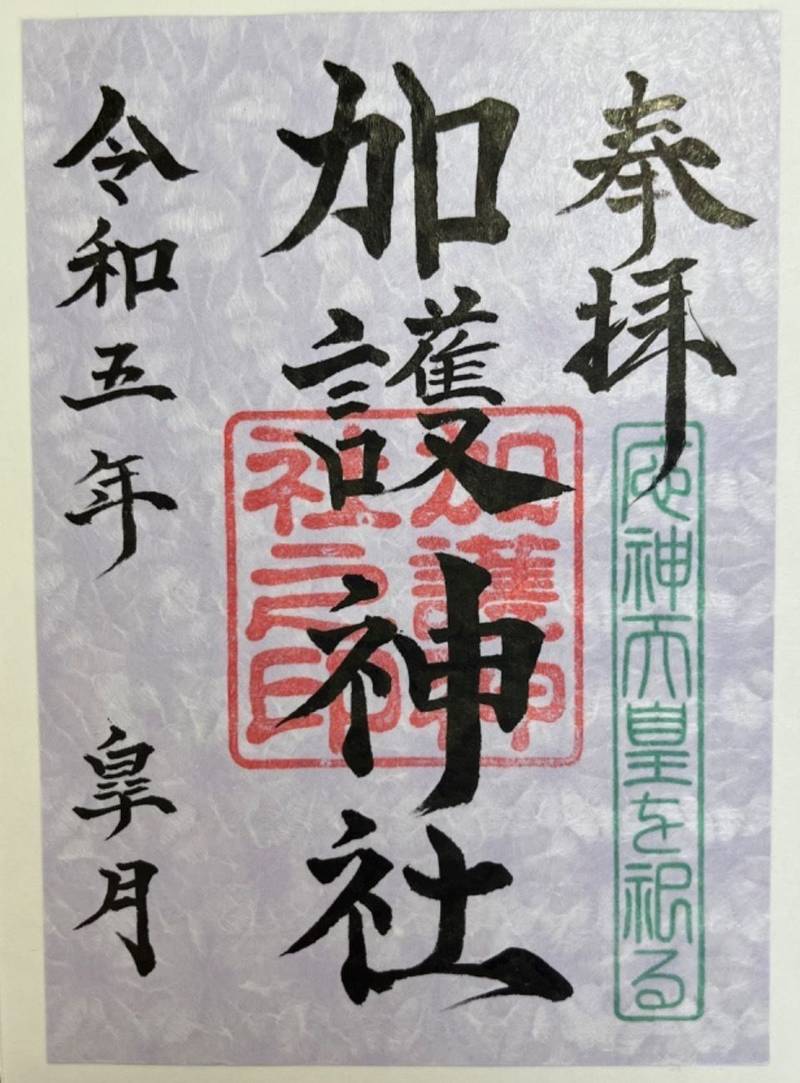 奉拝
応神天皇を祀る
加護神社
加護神
社之印
令和五年 皐月